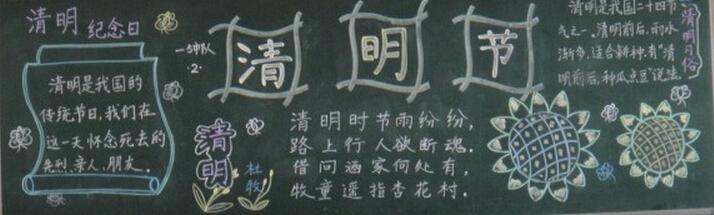 清明 纪念日
清明是我国的
传统节日,我们在
这一天怀念死去的
先烈、亲人、朋友。
一分队
·2·
清明节
清明
杜牧
清明时节雨纷纷,
路上行人欲断魂。
借问酒家何处有,
牧童遥指杏花村.
清明是我国二十四节
气之一,清明前后,雨水
渐多,适合耕种,有“清
明前后,种瓜点豆”说法.
清明习俗